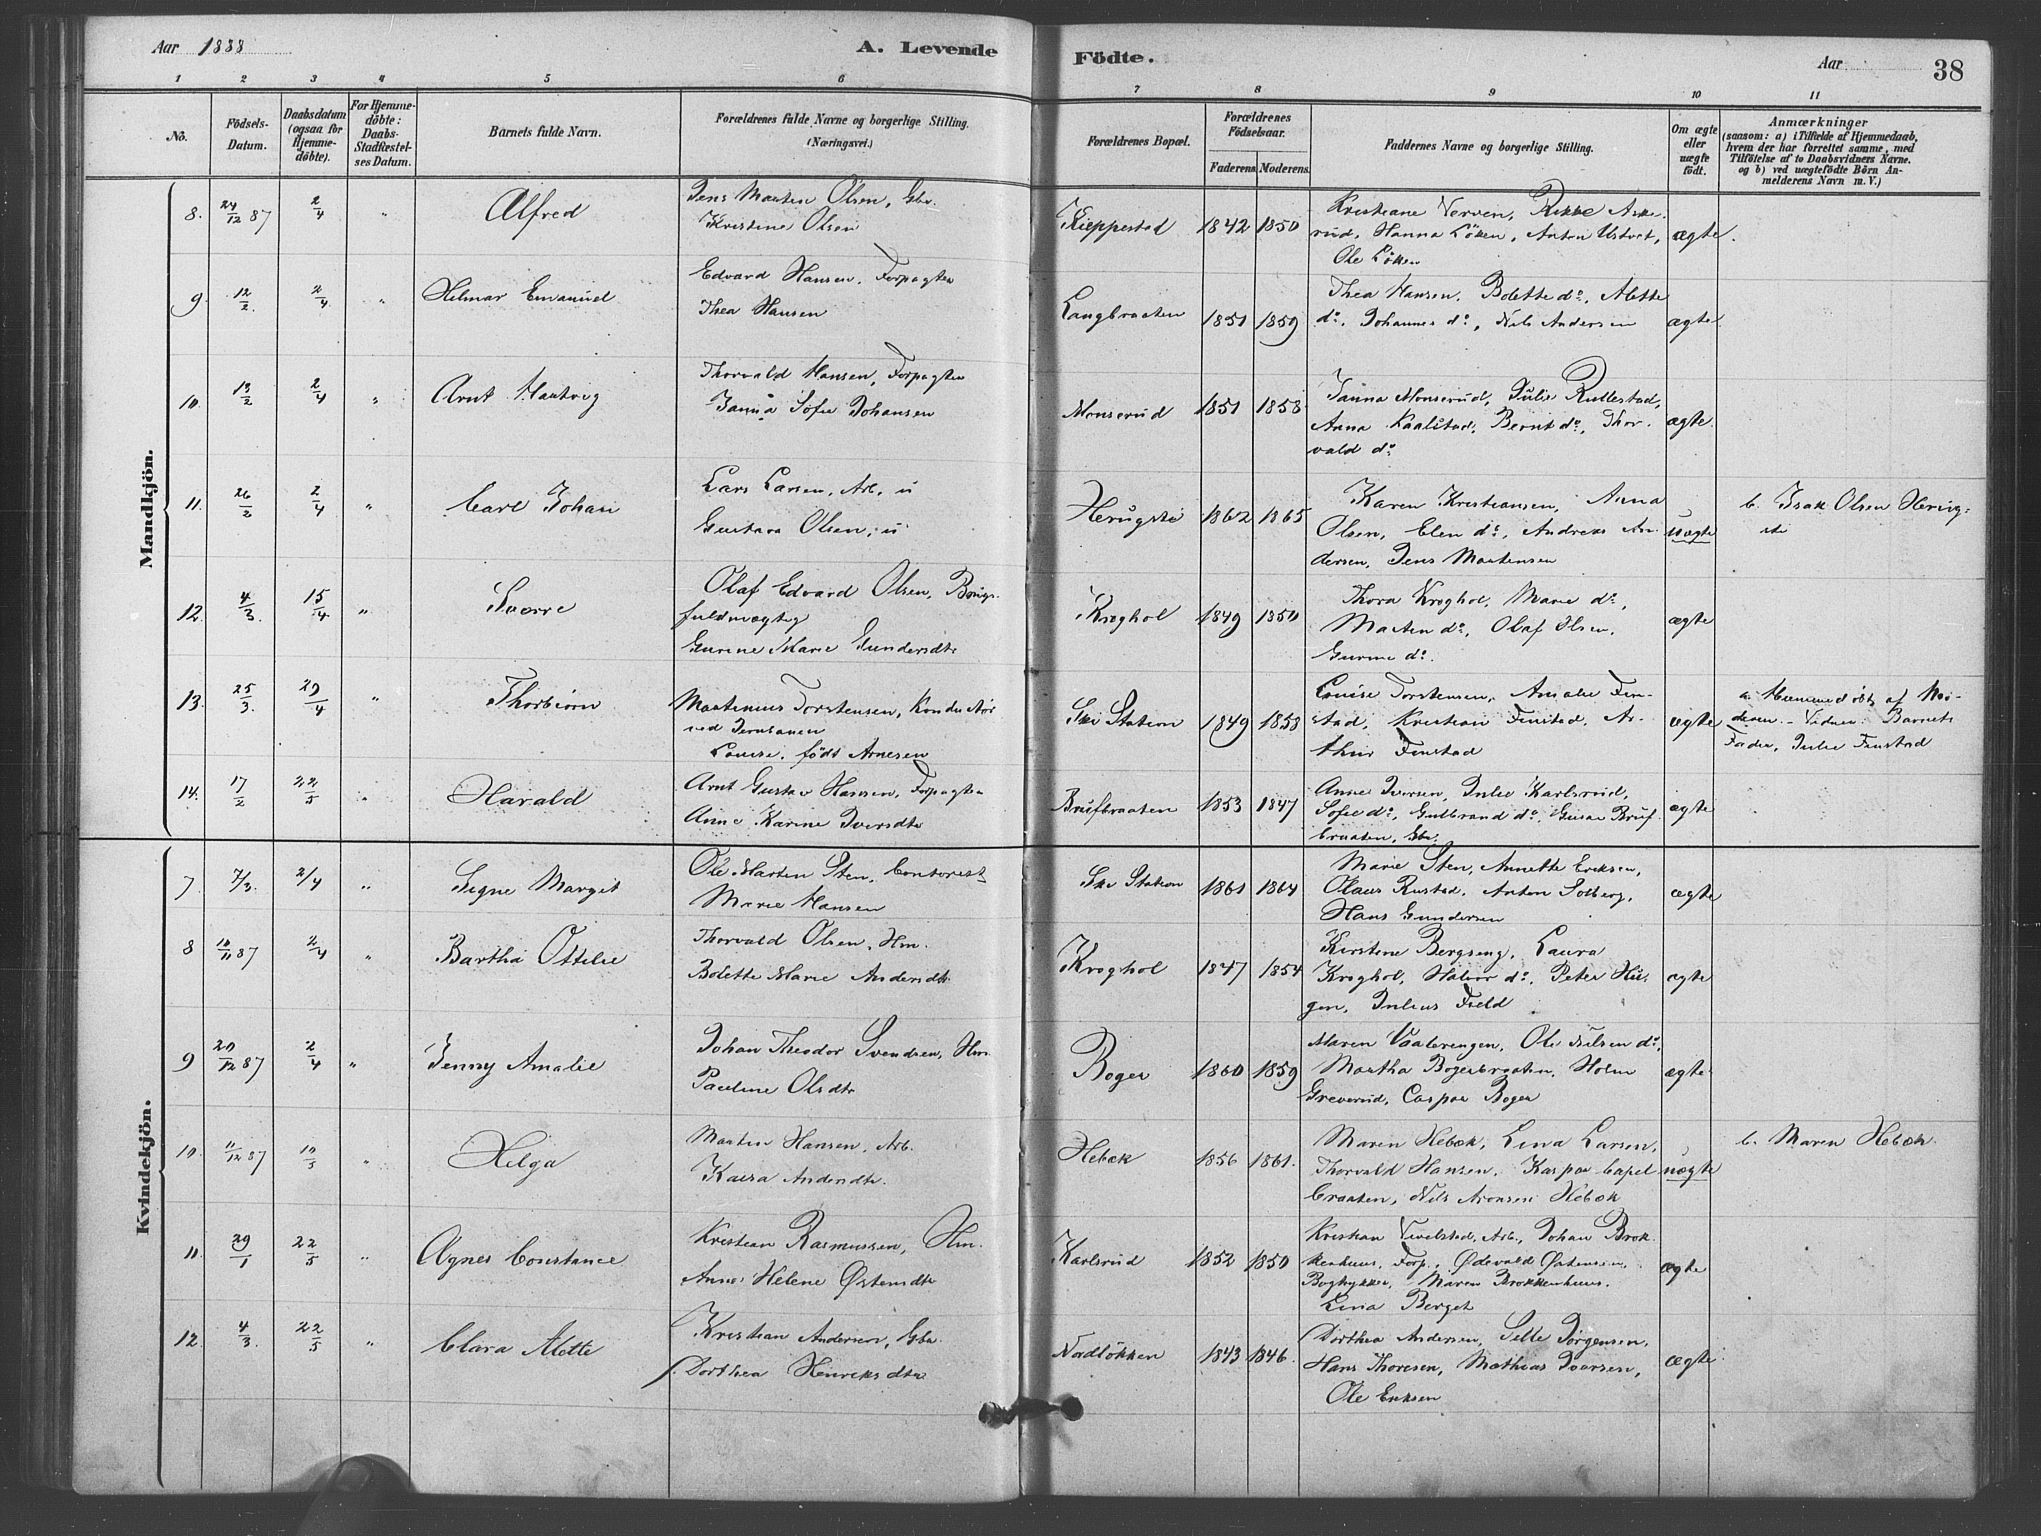 Aar 1888
A. Levende
Födte.
Aar
38
1 2 3 4 5 6 7 8 9 10 11
No.
Födsels-
Datum.
Daabsdatum
(ogsaa for
Hjemme-
döbte).
For Hjemme-
döbte:
Daabs-
Stadfæstel-
ses Datum.
Barnets fulde Navn.
Forældrenes fulde Navne og borgerlige Stilling.
(Næringsvei.)
Forældrenes Bopæl.
Forældrenes
Födselsaar.
Faderens Moderens.
Faddernes Navne og borgerlige Stilling.
Om ægte
eller
uægte
födt.
Anmærkninger
(saasom: a) i Tilfælde af Hjemmedaab,
hvem der har forrettet samme, med
Tilföielse af to Daabsvidners Navne.
og b) ved uægtefödte Börn An-
melderens Navn m. V.)
Mandkjön.
8. 24/12 87 2/4 " Alfred
Jens Martin Olsen, Gbr.
Kristine Olsen
Kieppestad 1842 1850
Kristiane Verven, Rikke Aske-
rud, Hanna Löken, Anton Ustvet,
Ole Löken
ægte.
9. 12/2. 2/4 " Hilmar Emanuel
Edvard Hansen, Forpagter
Thea Hansen
Langbraaten 1851 1859
Thea Hansen, Bolette do, Alette
do, Johannes do, Nils Andersen
ægte
10. 13/2 2/4 " Arnt Hartvig
Thorvald Hansen, Forpagter
Janna Sofie Johansen
Monserud 1851 1858
Janna Monserud, Julie Rullestad,
Anna Kaalstad, Bernt do, Thor-
vald do
ægte.
11. 26/2 2/4 " Carl Johan
Lars Larsen, Arb. u
Gustava Olsen, u
Herugsti 1862 1865
Karen Kristiansen, Anna
Olsen, Elen do, Andreas An-
dersen, Jens Martensen
uægte
b. Isak Olsen Herug-
sti
12. 4/3. 15/4. " Sverre
Olaf Edvard Olsen, Brugs-
fuldmægtig
Gurine Marie Gundersdtr
Kroghol 1849 1850
Thora Kroghol, Marie do,
Marten do, Olaf Olsen,
Gurine do.
ægte
13. 25/3. 29/4 " Thorbiörn
Martinius Torstensen, Konduktör
ved Jernbanen
Louise, födt Arnesen
Ski Station 1849 1858
Louise Torstensen, Amalie Fin-
stad, Kristian Finstad, Ar-
thur Finstad
ægte
a. Hjemmedöbt af Mo-
deren. Vidner: Barnets
Fader, Julie Finstad
14. 17/2 22/5 " Harald
Arnt Gustav Hansen, Forpagter
Anne Karine Iversdtr
Brufbraaten 1853 1847
Anne Iversen, Julie Karlsrud,
Sofie do, Gulbrand do, Gusta Bruf-
braaten, Gbr.
ægte
Kvindekjön.
7. 7/3. 2/4 " Signe Margit
Ole Martin Sten, Contorist
Marie Hansen
Ski Station 1861 1864
Marie Sten, Annette Eriksen,
Olaus Rustad, Anton Solberg,
Hans Gundersen
ægte
8 10/11 87 2/4 " Bartha Ottilie
Thorvald Olsen, Hm.
Bolette Marie Andersdtr
Kroghol 1847 1854
Kirstine Bergseng, Laura
Kroghol, Halvor do, Peter Hau-
gen, Julius Field
ægte
9 20/12 87 2/4 " Jenny Amalie
Johan Theodor Svendsen, Hm.
Pauline Olsdtr
Boger 1860 1859
Maren Vaalerengen, Ole Nilsen do,
Martha Bogerbraaten, Holm
Greverud, Caspar Boger
ægte
10. 11/12 87 10/5 " Helga
Martin Hansen, Arb.
Kaisa Andersdtr.
Hebæk 1856 1861.
Maren Hebæk, Lina Larsen,
Thorvald Hansen, Kaspar Capel-
braaten, Nils Aronsen Hebæk
uægte
b. Maren Hebæk
11. 29/1 22/5 " Agnes Constance
Kristian Rasmussen, Hm.
Anne Helene Østensdtr
Karlsrud 1852 1850
Kristian Vevelstad, Arb., Johan Brok-
kenhuus, Forp., Ødevald Østensen,
Bogtrykker, Maren Brokkenhuus,
Lina Berget
ægte
12. 4/3. 22/5 " Clara Alette
Kristian Andersen, Gbr.
Dorthea Henriksdtr
Nordlökken 1843 1846.
Dorthea Andersen, Sille Jörgensen,
Hans Thoresen, Mathias Ivarsen,
Ole Eriksen
ægte